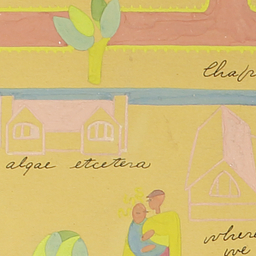 Chap
algae etcetera
where
we